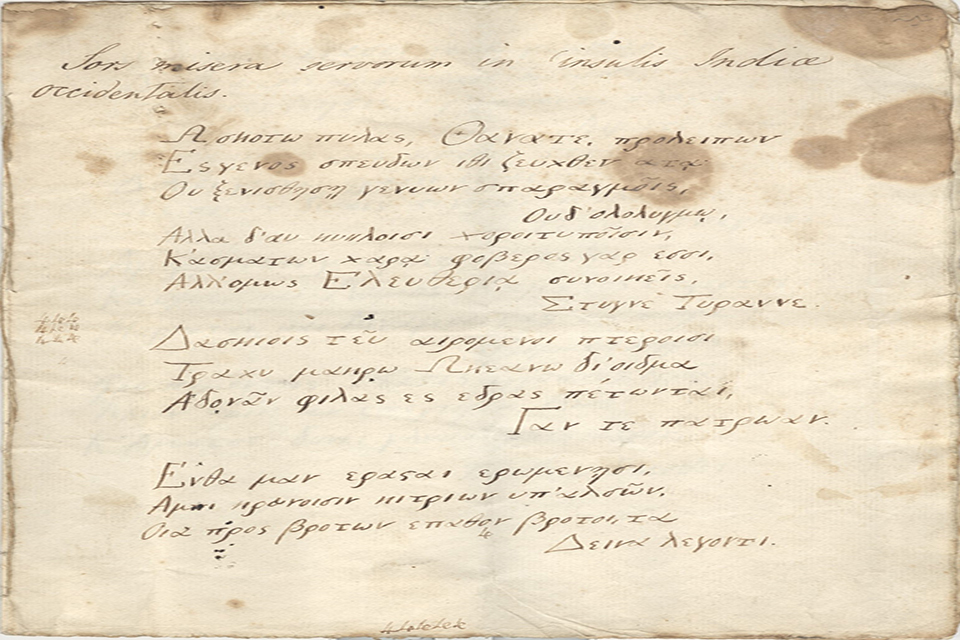 Sors misera servorum in insulis Indiæ
occidentalis.
Ω σκοτω πυλας, Θανατε, προλειπων
Ες γενος σπευδων ιθι ζευχθεν ατᾳ·
Ου ξενισθησῃ γενυων σπαραγμοῖς,
Ουδ' ολολυγμῳ,
Αλλα δ'αυ κυκλοισι χοροιτυποῖσιν,
Κ'ασματων χαρᾳ· φοβερος γαρ εσσι,
Αλλ'ομως Ελευθεριᾳ συνοικεῖς,
Στυγνε Τυραννε.
Δασκιοις τεῦ αιρομενοι πτεροισι
Τραχυ μακρω Ωκεανω δι'οιδμα
Ἀδονᾶν φιλας ες εδρας πέτωνται,
Γαν τε πατρωαν.
Ἐνθα μαν ερασται ερωμενησι,
Αμφι κρουνοισιν κιτριων υπ'αλσῶν,
Οια πρὸς βροτων επαθον βροτοι, τα
Δεινα λεγοντι.